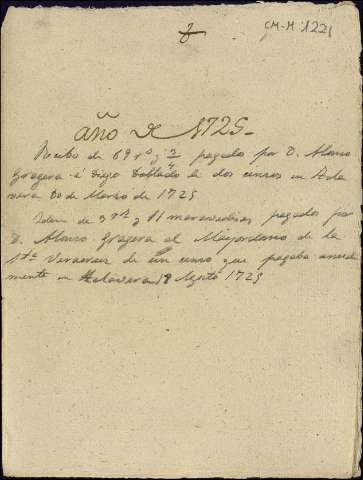 CM-M 1221
8
año de 1725-
Recibo de 69 rs y 3/4 pagados por D. Alonso
Gragera a Diego Doblado de dos censos en Tala
vera 20 de Marzo de 1725
Idem de 3 rs y 11 maravedises pagados por
D. Alonso Gragera al Mayordomo de la
Sta Veracruz de un censo que pagaba anual
mente en Talavera 19 Agosto 1725